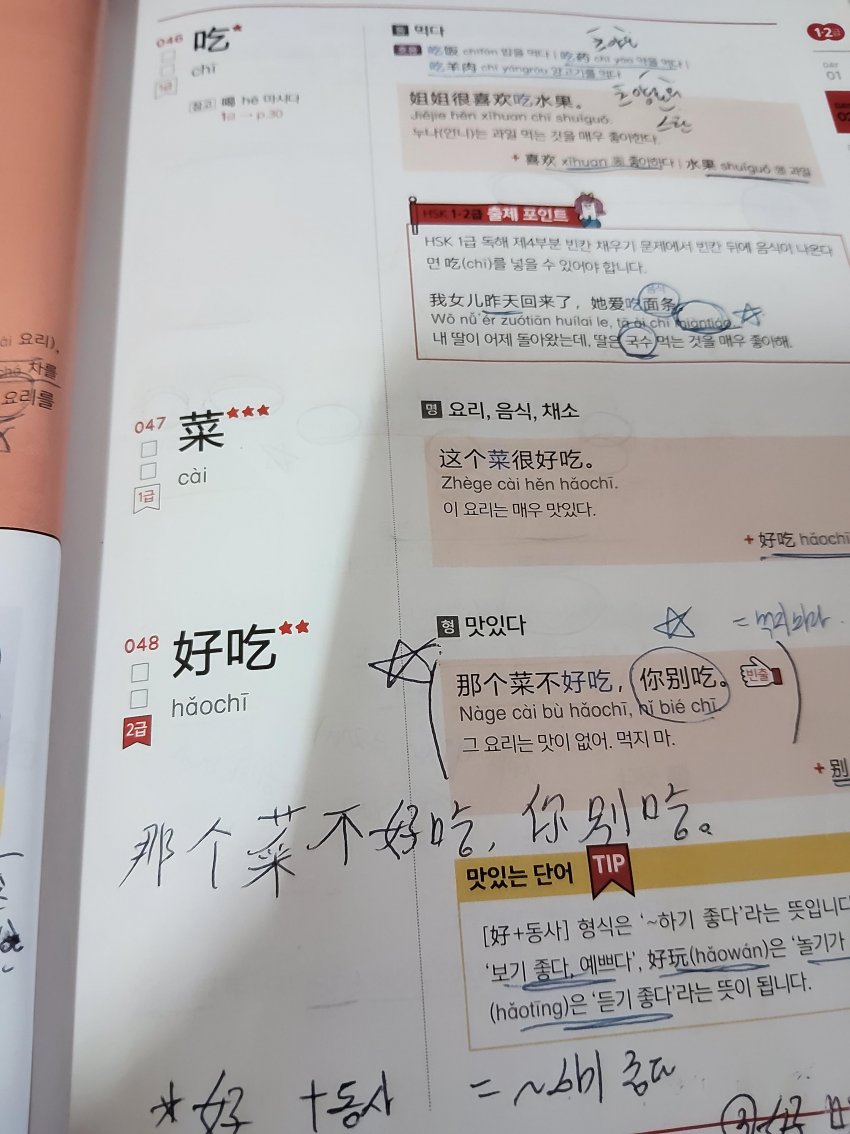 046 吃*
chī
1급
참고 喝 hē 마시다
1급 → p.30
동 먹다
호응 吃饭 chīfàn 밥을 먹다 | 吃药 chī yào 약을 먹다 |
吃羊肉 chī yángròu 양고기를 먹다
姐姐很喜欢吃水果。
Jiějie hěn xǐhuan chī shuǐguǒ.
누나(언니)는 과일 먹는 것을 매우 좋아한다.
+ 喜欢 xǐhuan 동 좋아한다 | 水果 shuǐguǒ 명 과일
1·2급
DAY
01
HSK 1·2급 출제 포인트
HSK 1급 독해 제4부분 빈칸 채우기 문제에서 빈칸 뒤에 음식이 나온다
면 吃(chī)를 넣을 수 있어야 합니다.
음식
我女儿昨天回来了，她爱吃面条
Wǒ nǚ'ér zuótiān huílai le, tā ài chī miàntiáo
내 딸이 어제 돌아왔는데, 딸은 국수 먹는 것을 매우 좋아해.
요리),
차를
요리를
047 菜★★★
cài
1급
명 요리, 음식, 채소
这个菜很好吃。
Zhège cài hěn hǎochī.
이 요리는 매우 맛있다.
+ 好吃 hǎochī
048 好吃★★
hǎochī
2급
형 맛있다
= 먹지마라.
那个菜不好吃，你别吃。 빈출
Nàge cài bù hǎochī, nǐ bié chī.
그 요리는 맛이 없어. 먹지 마.
+ 别
那个菜不好吃, 你别吃。
맛있는 단어 TIP
[好+동사] 형식은 '~하기 좋다'라는 뜻입니다
'보기 좋다, 예쁘다', 好玩(hǎowán)은 '놀기가
(hǎotīng)은 '듣기 좋다'라는 뜻이 됩니다.
* 好 +동사 = ~하기 좋다